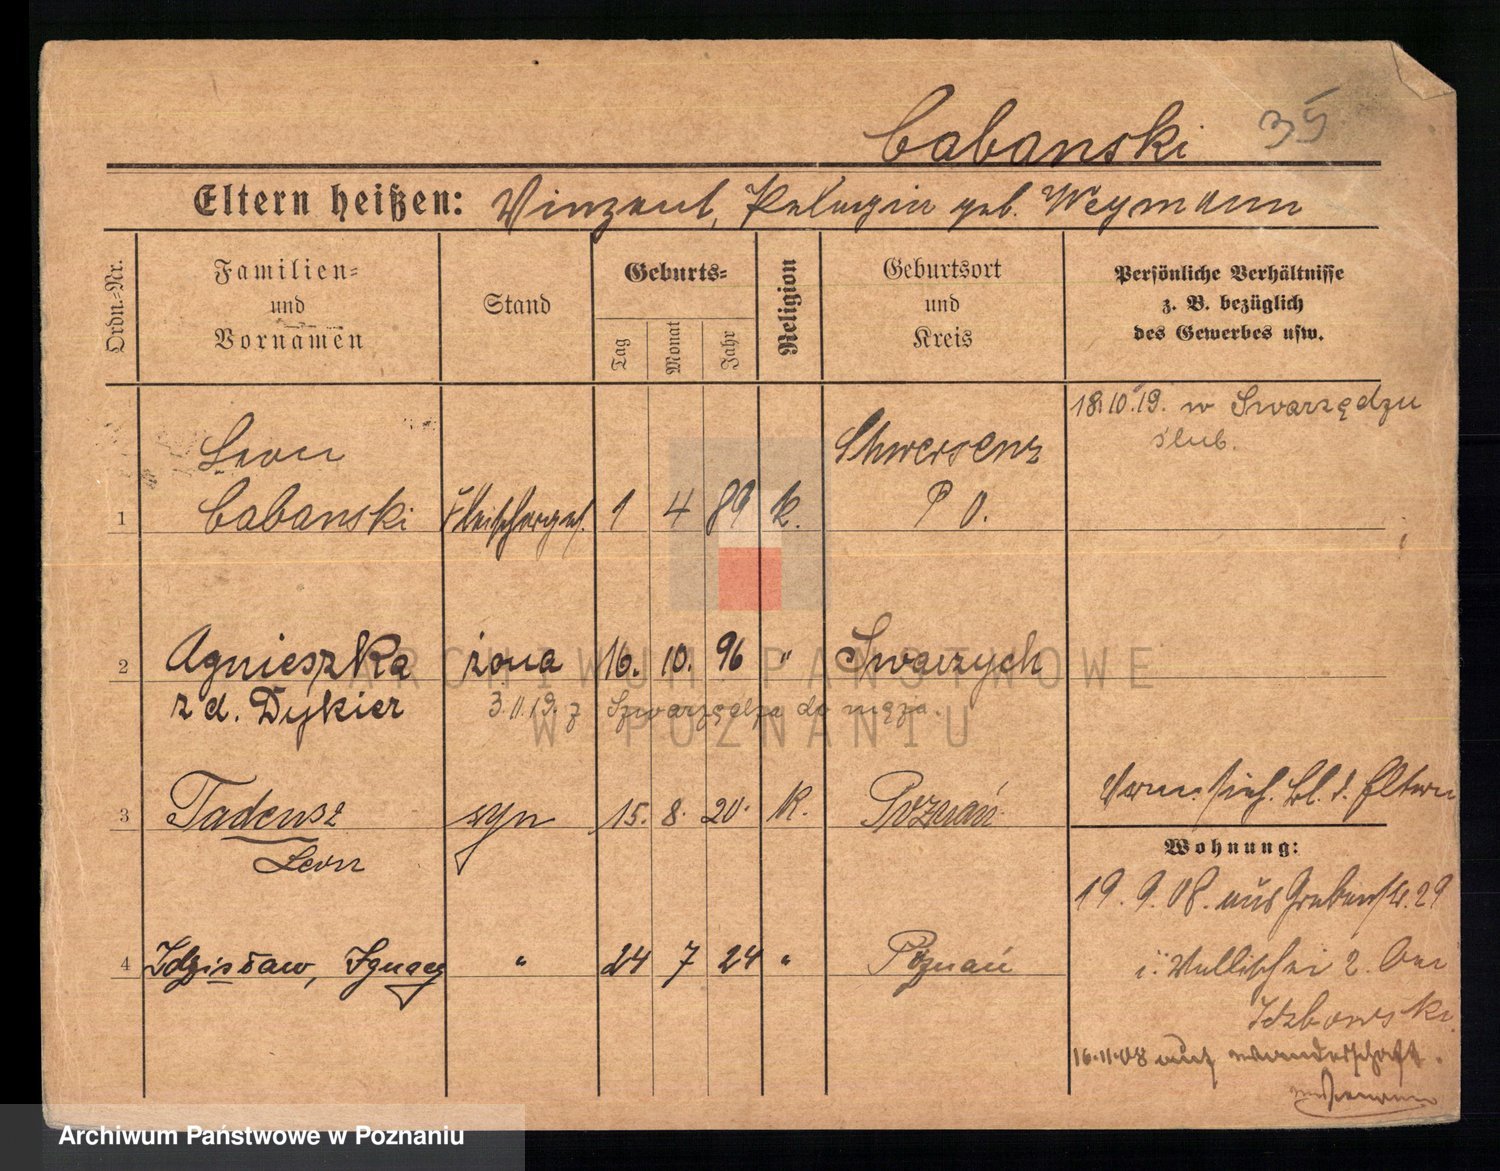 Cabanski 35
Eltern heißen: Vinzent, Pelagia geb. Weymann
Ordn.-Nr.
Familien-
und
Vornamen
Stand
Geburts-
Tag
Monat
Jahr
Religion
Geburtsort
und
Kreis
Persönliche Verhältnisse
z. B. bezüglich
des Gewerbes usw.
18.10.19. w Swarzędzu
ślub.
Leon Schwersenz
1 Cabanski Fleischerges. 1 4 89 k. P O.
2 Agnieszka żona 16. 10. 96 " Swarzych
z d. Dykier 3.11.19. z Szwarzędza do męża.
3 Tadeusz syn 15. 8. 20. k. Poznań
Leon
4 Zdzisław, Ignacy " 24 7 24 " Poznań
d. Eltern
Wohnung:
19. 9. 08. aus Grabenstr. 29
i. Wallischei 2. bei
Idzbowski
16.11.08 auf wanderschaft.
ARCHIWUM PAŃSTWOWE
W POZNANIU
Archiwum Państwowe w Poznaniu